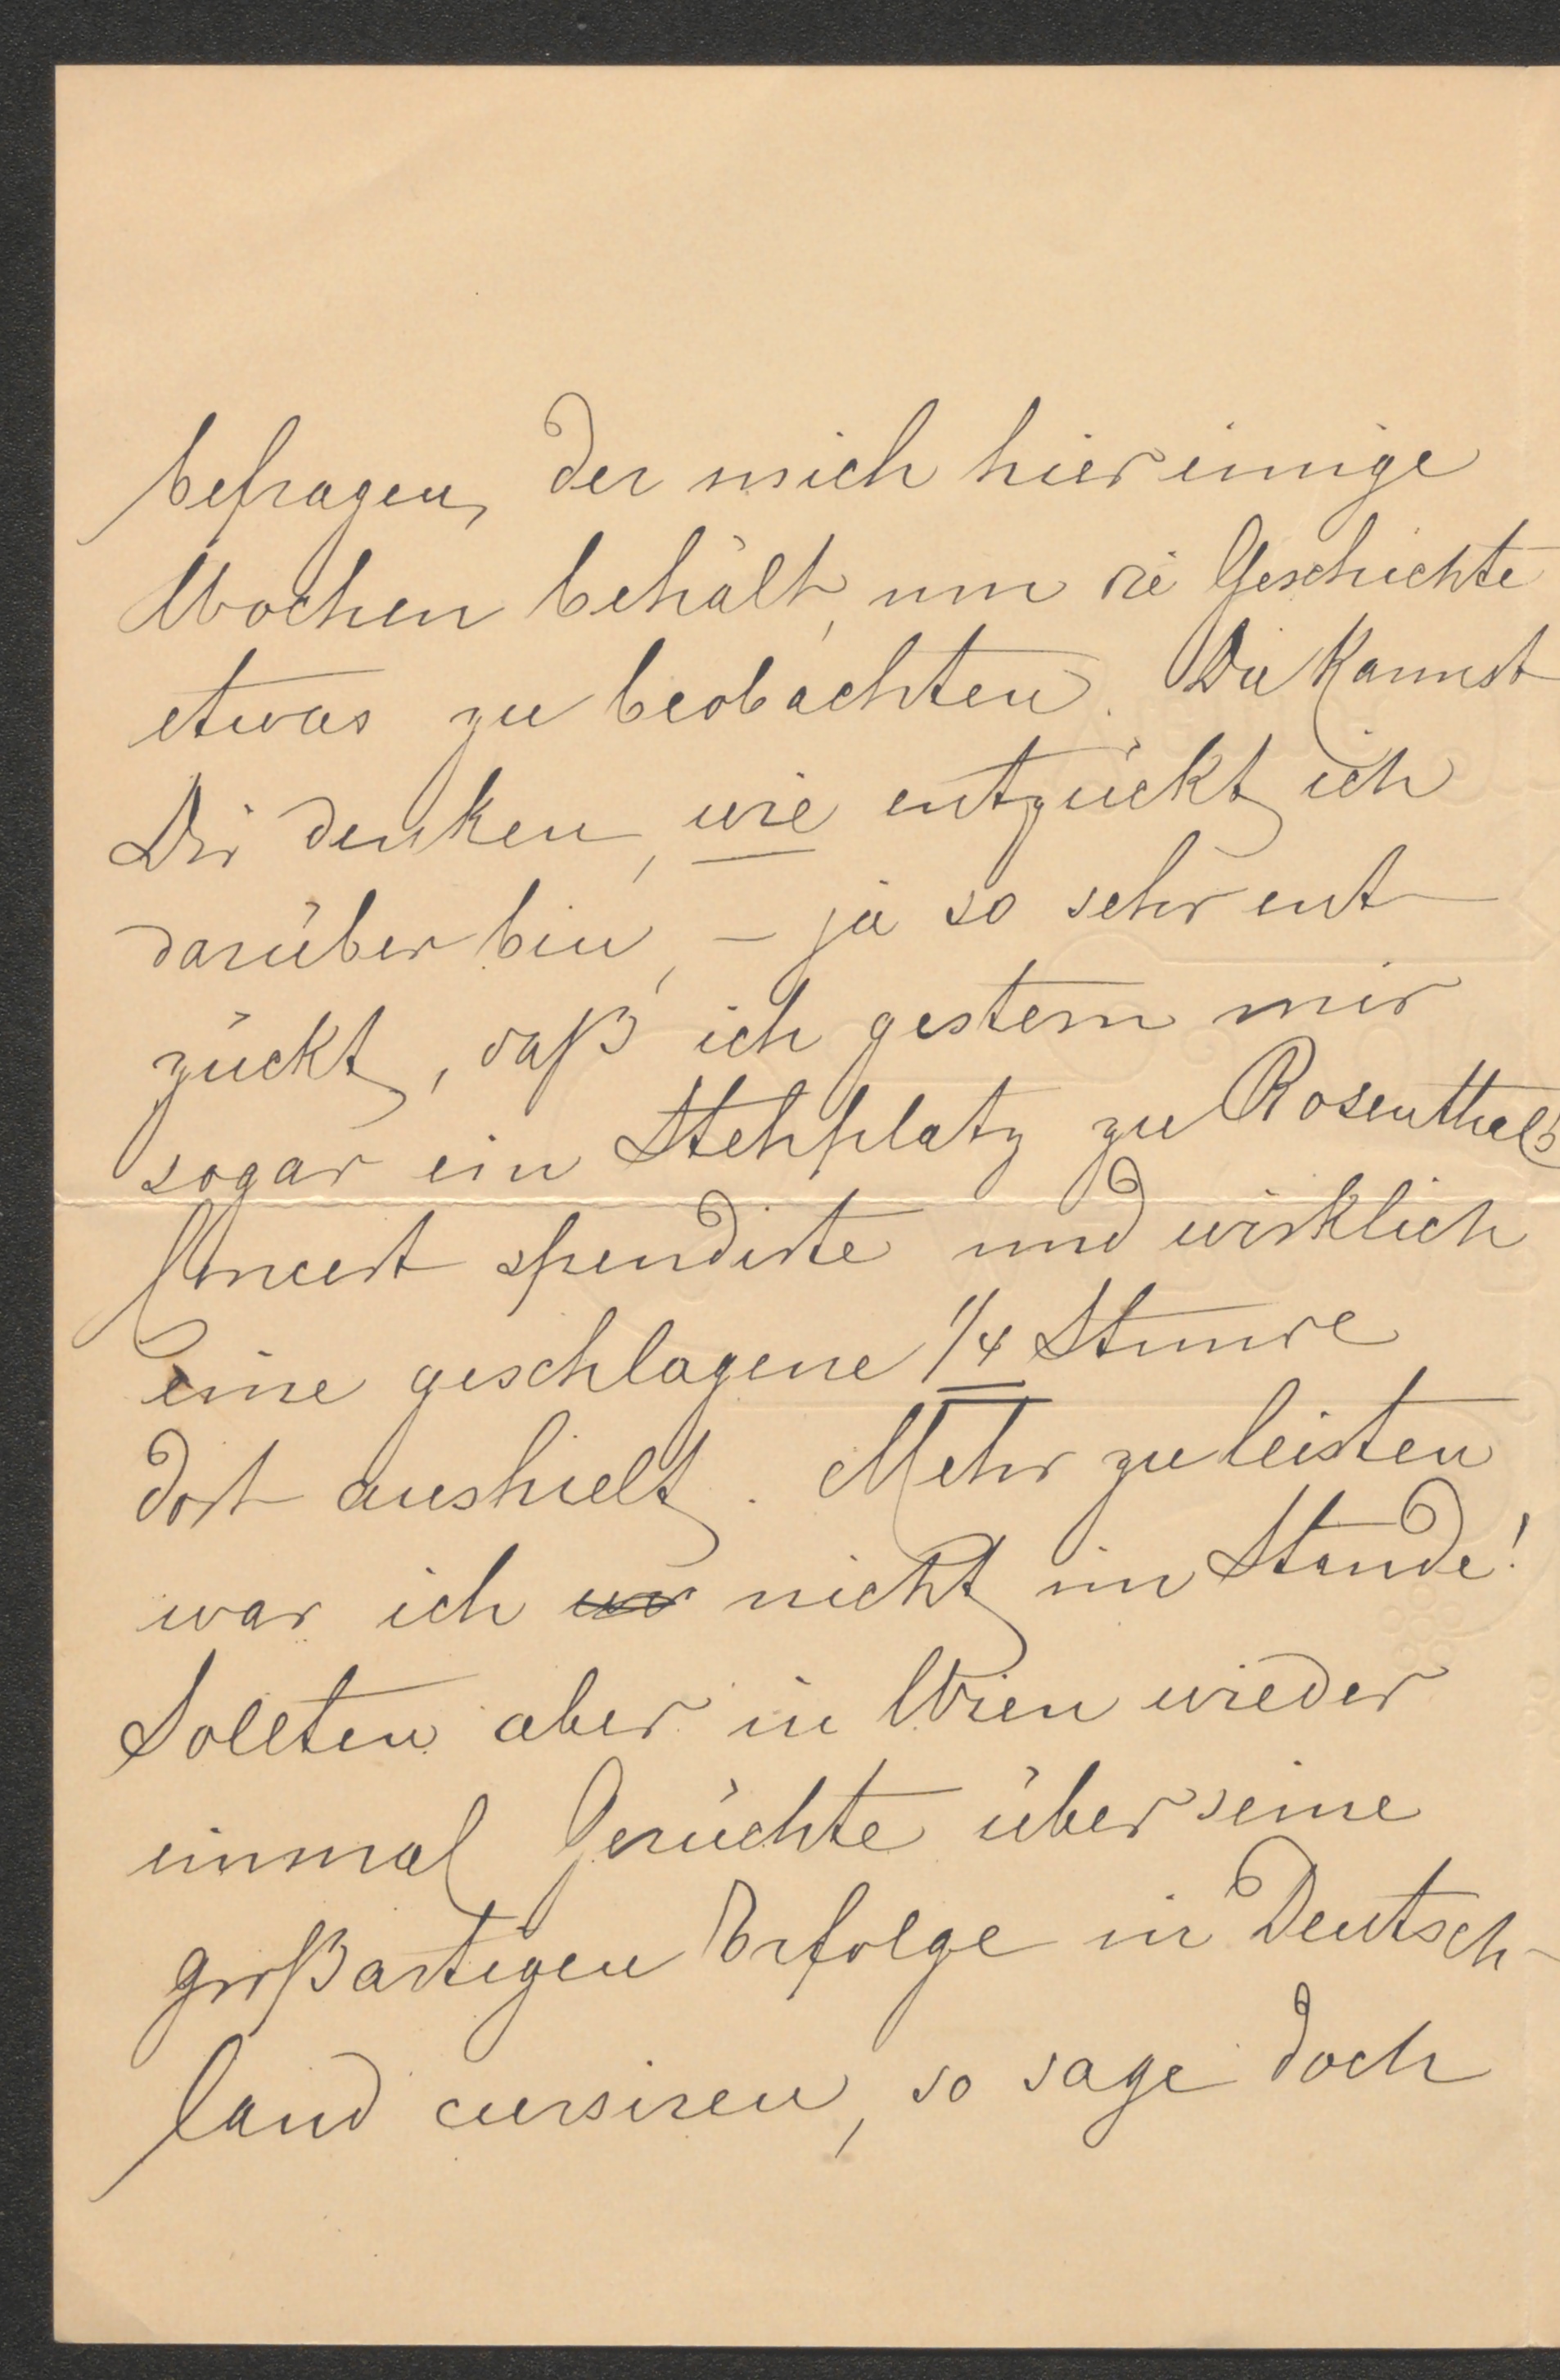 befragen, der mich hier einige
Wochen behält, um die Geschichte
etwas zu beobachten. Du kannst
Dir denken, wie entzückt ich
darüber bin, – ja so sehr ent-
zückt, daß ich gestern mir
sogar ein Stehplatz zu Rosenthals
Concert spendirte und wirklich
eine geschlagene 1/4 Stunde
dort aushielt. Mehr zu leisten
war ich nicht im Stande!
Sollten aber in Wien wieder
einmal Gerüchte über seine
großartigen Erfolge in Deutsch-
land cursiren, so sage doch